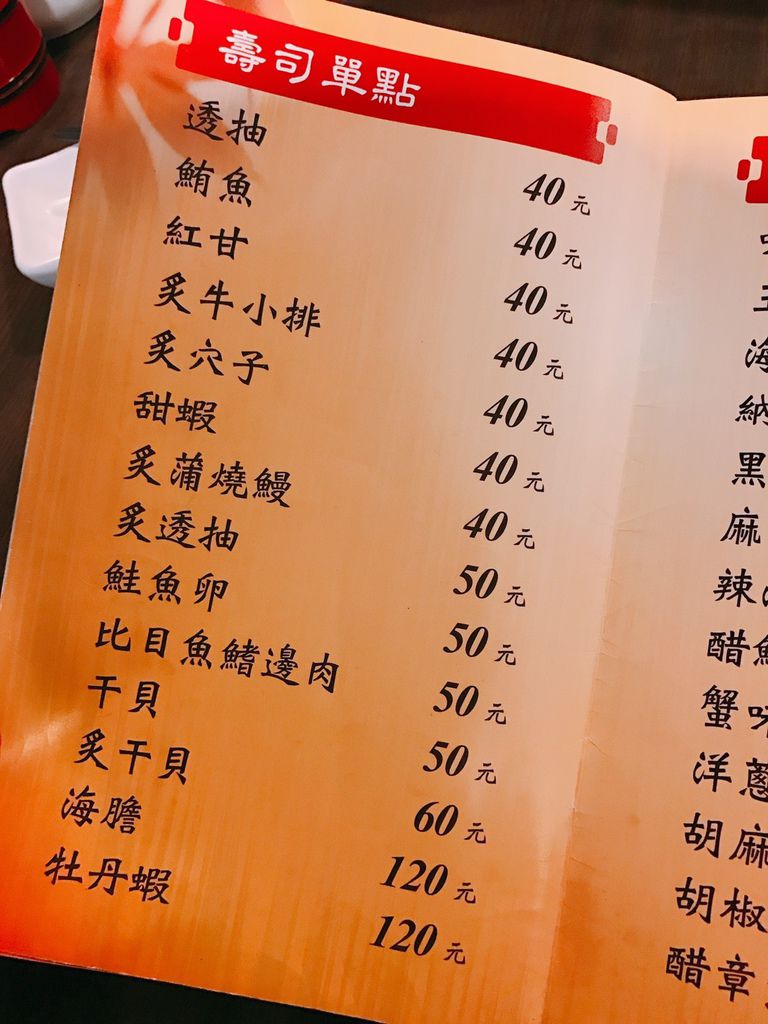 壽司單點
透抽 40元
鮪魚 40元
紅甘 40元
炙牛小排 40元
炙穴子 40元
甜蝦 40元
炙蒲燒鰻 40元
炙透抽 50元
鮭魚卵 50元
比目魚鰭邊肉 50元
干貝 50元
炙干貝 60元
海膽 120元
牡丹蝦 120元
海
納
黑
麻
辣
醋
蟹
洋蔥
胡麻
胡椒
醋章